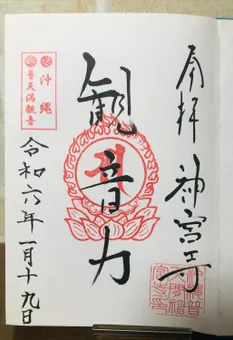 奉拝 神宮寺
観音力
沖縄
普天満観音
令和六年一月十九日